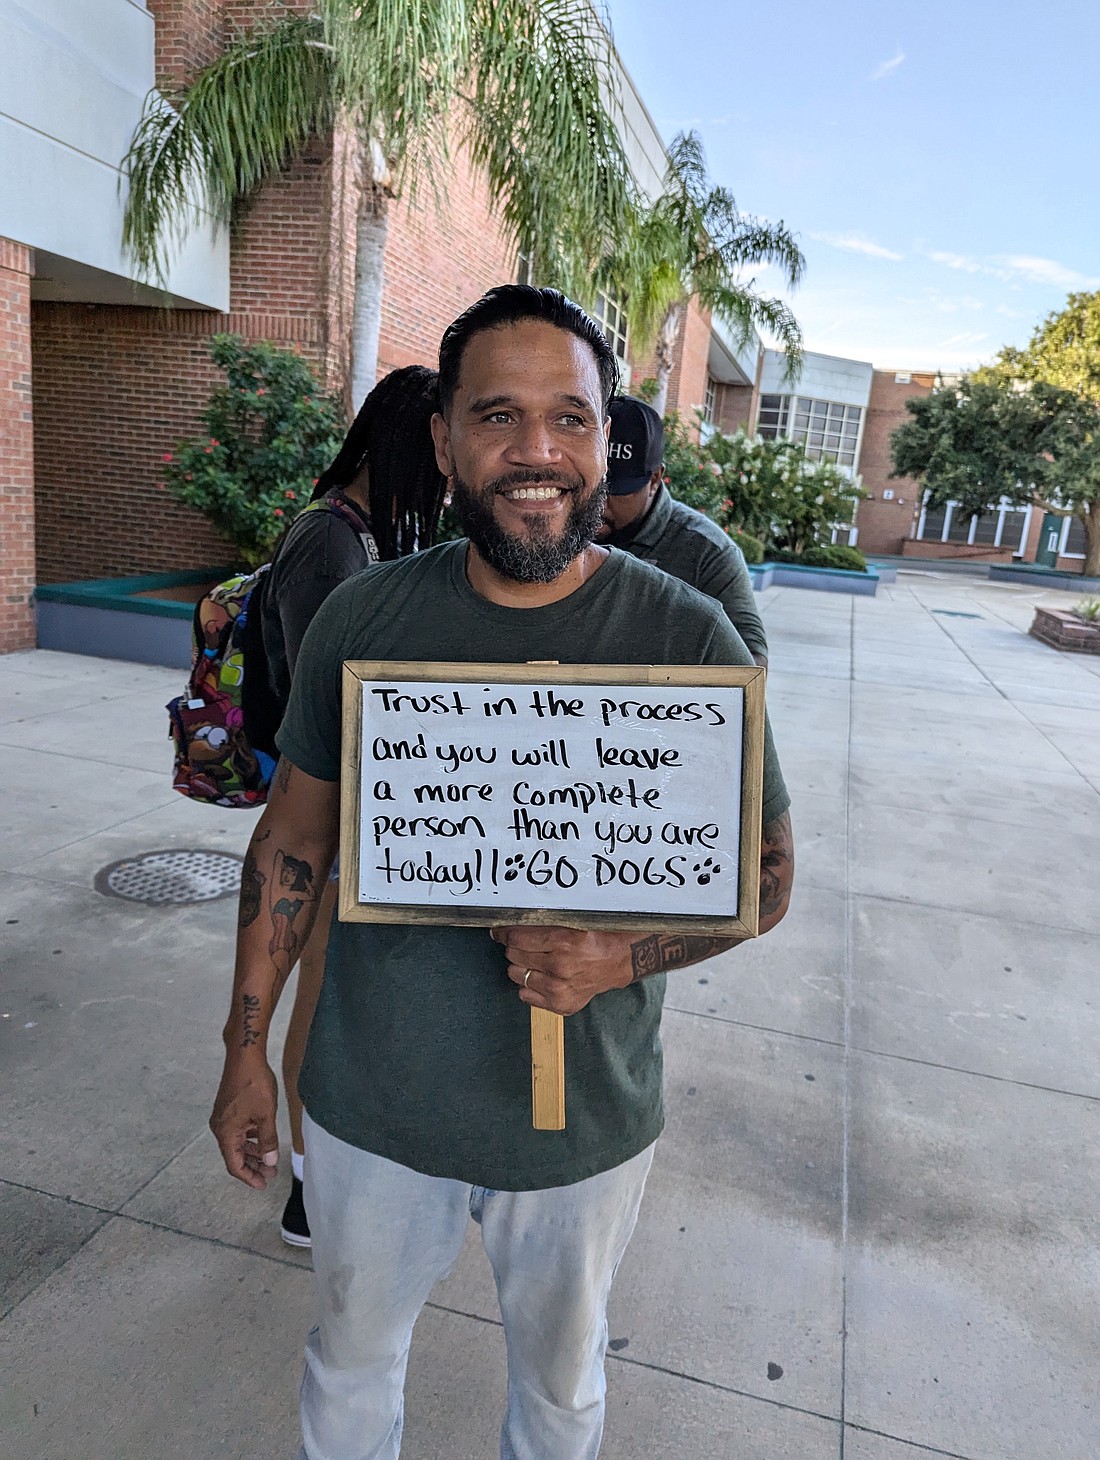 HS
Trust in the process
and you will leave
a more complete
person than you are
today!! GO DOGS